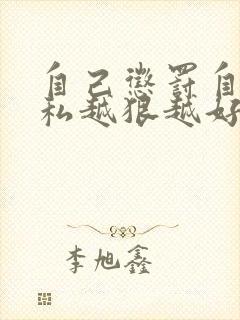 自己惩罚自
私越狠越好
李旭鑫